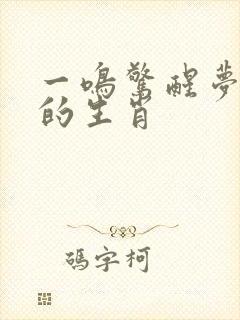 一鳴驚醒夢
的生肖
碼字柯